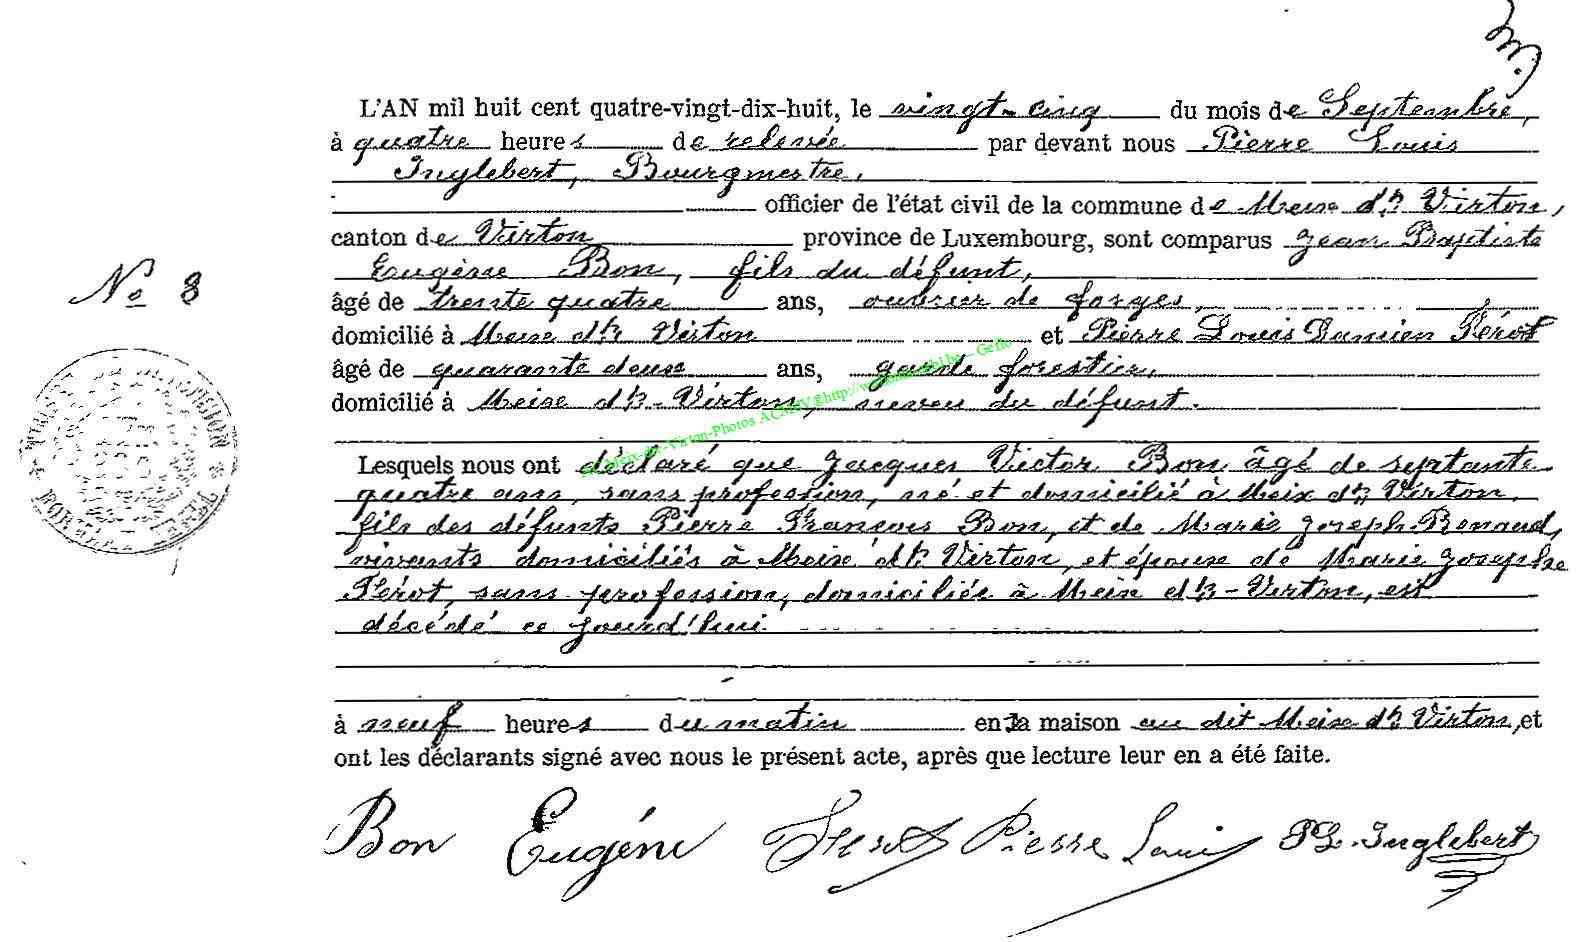 L'AN mil huit cent quatre-vingt-dix-huit, le vingt-cinq du mois de Septembre,
à quatre heures de relevée par devant nous Pierre Louis
Inglebert, Bourgmestre,
officier de l'état civil de la commune de Meix dt Virton,
canton de Virton province de Luxembourg, sont comparus Jean Baptiste
Eugène Bon, fils du défunt,
No 8
âgé de trente quatre ans, ouvrier de forges,
domicilié à Meix dt Virton et Pierre Louis Damien Férot
âgé de quarante deux ans, garde forestier,
domicilié à Meix dt-Virton, neveu du défunt.
Lesquels nous ont déclaré que Jacques Victor Bon âgé de septante
quatre ans, sans profession, né et domicilié à Meix dt Virton,
fils des défunts Pierre François Bon, et de Marie Joseph Renaud,
vivants domiciliés à Meix dt Virton, et époux de Marie Josephe
Férot, sans profession, domiciliée à Meix dt-Virton, est
décédé ce jourd'hui
à neuf heures du matin en la maison au dit Meix dt Virton, et
ont les déclarants signé avec nous le présent acte, après que lecture leur en a été faite.
Bon Eugène Pierre Louis PL. Inglebert